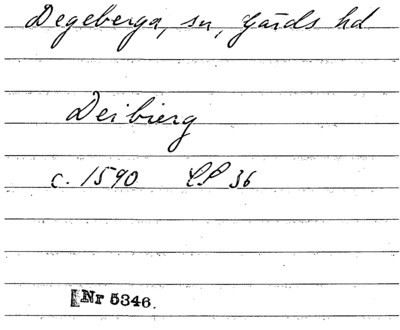 Degeberga, sn, Gärds hd
Deibierg
c. 1590 LP 36
Nr 5346.